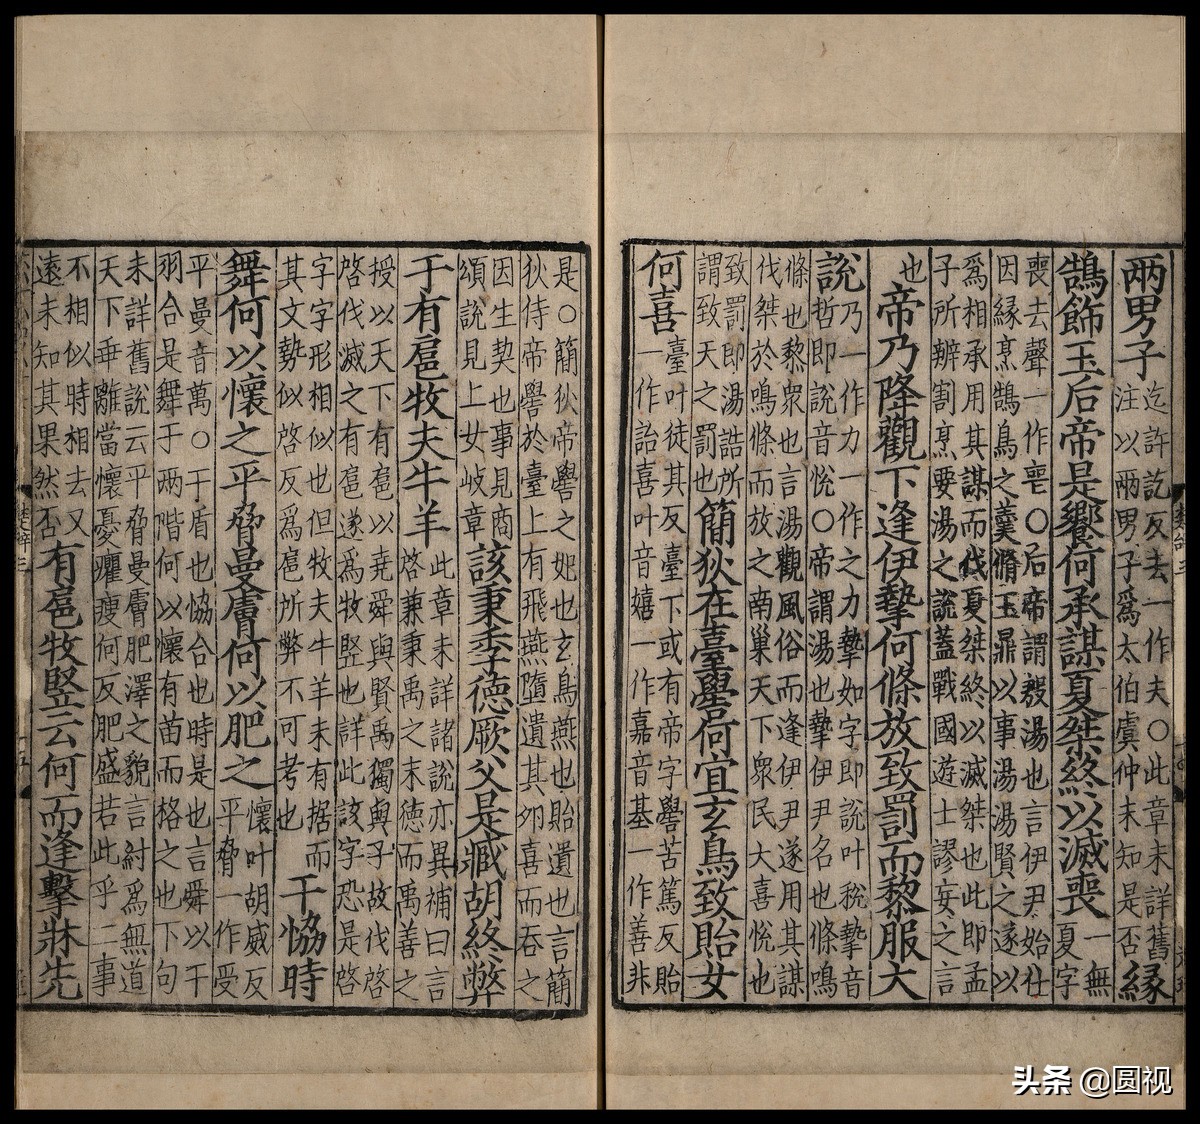 兩男子迄許訖反去一作夫〇此章未詳舊
注以兩男子爲太伯虞仲未知是否緣
鵠飾玉后帝是饗何承謀夏桀終以滅喪一無
夏字
喪去聲一作䘮〇后帝謂殷湯也言伊尹始仕
因緣烹鵠鳥之羹脩玉鼎以事湯湯賢之遂以
爲相承用其謀而伐夏桀終以滅桀也此即孟
子所辨割烹要湯之說蓋戰國遊士謬妄之言
也帝乃降觀下逢伊摯何條放致罰而黎服大
說乃一作力一作之力摯如字即說叶稅摯音
哲即說音恱〇帝謂湯也摯伊尹名也條鳴
條也黎衆也言湯觀風俗而逢伊尹遂用其謀
伐桀於鳴條而放之南巢天下衆民大喜恱也
致罰即湯誥所
謂致天之罰也簡狄在臺嚳何宜玄鳥致貽女
何喜臺叶徒其反臺下或有帝字嚳苦篤反貽
一作詒喜叶音嬉一作嘉音基一作善非
是〇簡狄帝嚳之妃也玄鳥燕也貽遺也言簡
狄侍帝嚳於臺上有飛燕墮遺其卵喜而吞之
因生契也事見商
頌說見上女岐章該秉季德厥父是臧胡終弊
于有扈牧夫牛羊此章未詳諸說亦異補曰言
啓兼秉禹之末德而禹善之
授以天下有扈以堯舜與賢禹獨與子故伐啓
啓伐滅之有扈遂爲牧豎也詳此該字恐是啓
字字形相似也但牧夫牛羊未有据而
其文勢似啓反爲扈所弊不可考也干協時
舞何以懷之平脅曼膚何以肥之懷叶胡威反
平脅一作受
平曼音萬〇干盾也協合也時是也言舜以干
羽合是舞于兩階何以懷有苗而格之也下句
未詳舊說云平脅曼膚肥澤之貌言紂爲無道
天下乖離當懷憂癯瘦何反肥盛若此乎二事
不相似時相去又
遠未知其果然否有扈牧豎云何而逢擊牀先
头条 @圆视